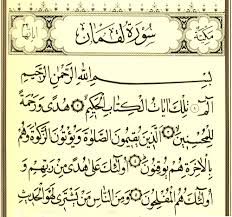 مكية سُورَةُ لُقْمَانَ
بِسْمِ اللهِ الرَّحْمٰنِ الرَّحِيمِ
الٓمٓ ۝ تِلْكَ اٰيَاتُ الْكِتَابِ الْحَكِيمِ ۝ هُدًى وَرَحْمَةً
لِلْمُحْسِنِينَ ۝ اَلَّذِينَ يُقِيمُونَ الصَّلٰوةَ وَيُؤْتُونَ الزَّكٰوةَ وَهُمْ
بِالْاٰخِرَةِ هُمْ يُوقِنُونَ ۝ اُولٰٓئِكَ عَلٰى هُدًى مِنْ رَبِّهِمْ وَ
اُولٰٓئِكَ هُمُ الْمُفْلِحُونَ ۝ وَمِنَ النَّاسِ مَنْ يَشْتَرِى لَهْوَ الْحَدِيثِ